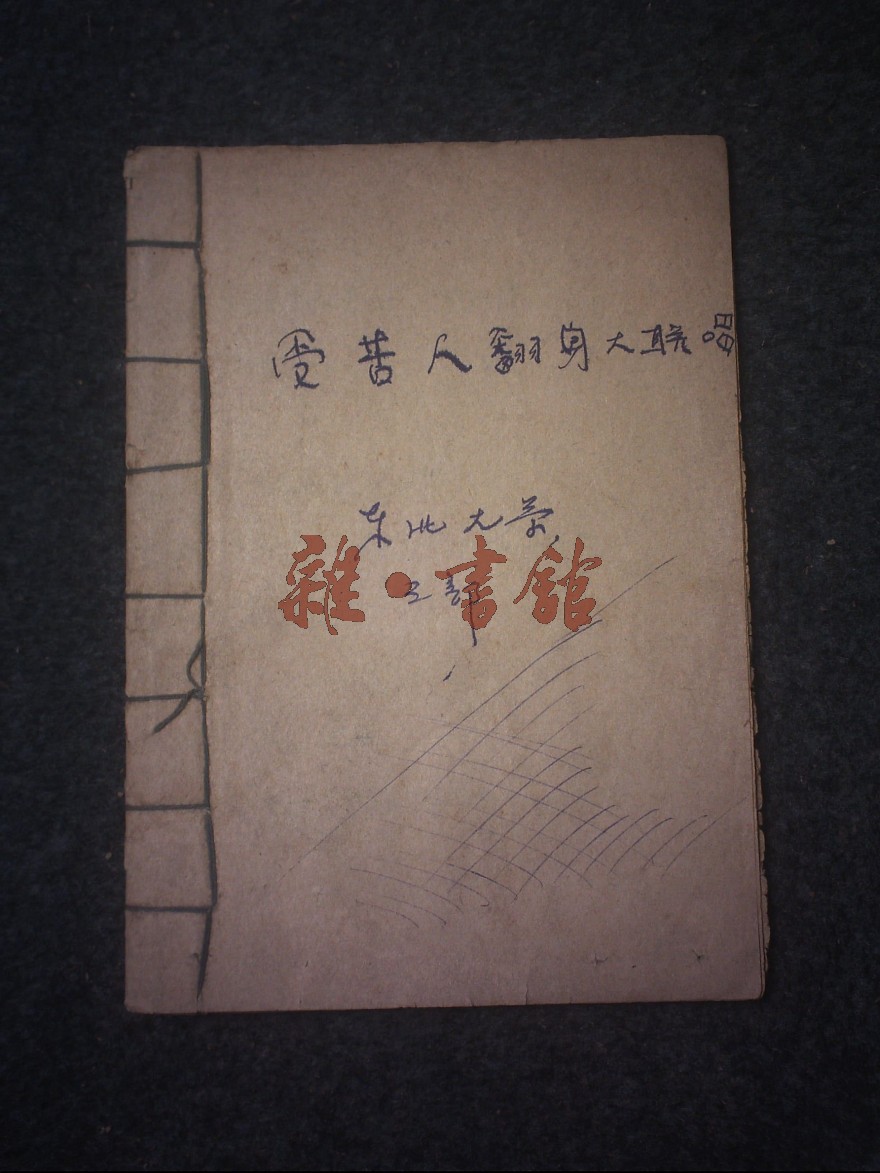 受苦人翻身大联唱
东北大学
雜·書館
三部